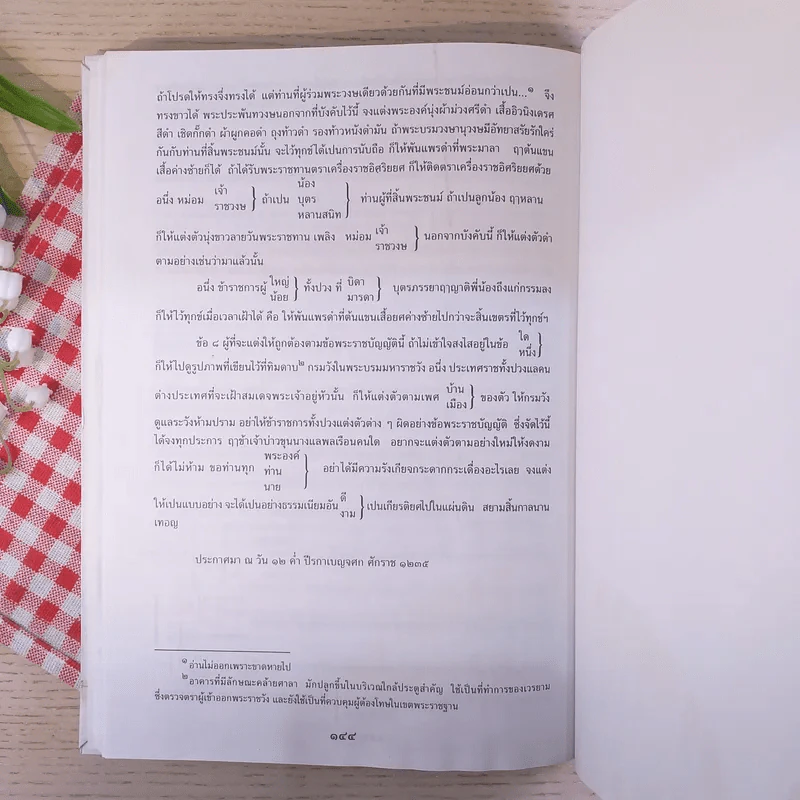 ถ้าโปรดให้ทรงจึ่งทรงได้ แต่ท่านที่ผู้ร่วมพระวงษเดียวด้วยกันที่มีพระชนม์อ่อนกว่าเปน...๑ จึง
ทรงขาวได้ พระประพันทวงษนอกจากที่บังคับไว้นี้ จงแต่งพระองค์นุ่งผ้าม่วงศรีดำ เสื้ออิวนิงเดรศ
สีดำ เชิตกั๊กดำ ผ้าผูกคอดำ ถุงท้าวดำ รองท้าวหนังดำมัน ถ้าพระบรมวงษานุวงษมีอัทยาสรัยรักใคร่
กันกับท่านที่สิ้นพระชนม์นั้น จะไว้ทุกข์ได้เปนการนับถือ ก็ให้พันแพรดำที่พระมาลา ฤๅต้นแขน
เสื้อค่างซ้ายก็ได้ ถ้าได้รับพระราชทานตราเครื่องราชอิศริยยศ ก็ให้ติดตราเครื่องราชอิศริยยศด้วย
อนึ่ง หม่อม เจ้า ราชวงษ } ถ้าเปน น้อง บุตร หลานสนิท } ท่านผู้ที่สิ้นพระชนม์ ถ้าเปนลูกน้อง ฤๅหลาน
ก็ให้แต่งตัวนุ่งขาวลายวันพระราชทาน เพลิง หม่อม เจ้า ราชวงษ } นอกจากบังคับนี้ ก็ให้แต่งตัวดำ
ตามอย่างเช่นว่ามาแล้วนั้น
อนึ่ง ข้าราชการผู้ ใหญ่ น้อย } ทั้งปวง ที่ บิดา มารดา } บุตรภรรยาฤๅญาติพี่น้องถึงแก่กรรมลง
ก็ให้ไว้ทุกข์เมื่อเวลาเฝ้าได้ คือ ให้พันแพรดำที่ต้นแขนเสื้อยศค่างซ้ายไปกว่าจะสิ้นเขตรที่ไว้ทุกข์ฯ
ข้อ ๘ ผู้ที่จะแต่งให้ถูกต้องตามข้อพระราชบัญญัตินี้ ถ้าไม่เข้าใจสงไสอยู่ในข้อ ใด หนึ่ง }
ก็ให้ไปดูรูปภาพที่เขียนไว้ที่ทิมดาบ๒ กรมวังในพระบรมมหาราชวัง อนึ่ง ประเทศราชทั้งปวงแลคน
ต่างประเทศที่จะเฝ้าสมเดจพระเจ้าอยู่หัวนั้น ก็ให้แต่งตัวตามเพศ บ้าน เมือง } ของตัว ให้กรมวัง
ดูแลระวังห้ามปราม อย่าให้ข้าราชการทั้งปวงแต่งตัวต่าง ๆ ผิดอย่างข้อพระราชบัญญัติ ซึ่งจัดไว้นี้
ได้จงทุกประการ ฤๅเจ้าบ่าวขุนนางแลพลเรือนคนใด อยากจะแต่งตัวตามอย่างใหม่ให้งดงาม
ก็ได้ไม่ห้าม ขอท่านทุก พระองค์ ท่าน นาย } อย่าได้มีความรังเกียจกระดากกระเดื่องอะไรเลย จงแต่ง
ให้เปนแบบอย่าง จะได้เปนอย่างธรรมเนียมอัน ดี งาม } เปนเกียรติยศไปในแผ่นดิน สยามสิ้นกาลนาน
เทอญ
ประกาศมา ณ วัน ๑๒ ค่ำ ปีรกาเบญจศก ศักราช ๑๒๓๕
๑ อ่านไม่ออกเพราะขาดหายไป
๒ อาคารที่มีลักษณะคล้ายศาลา มักปลูกขึ้นในบริเวณใกล้ประตูสำคัญ ใช้เป็นที่ทำการของเวรยาม
ซึ่งตรวจตราผู้เข้าออกพระราชวัง และยังใช้เป็นที่ควบคุมผู้ต้องโทษในเขตพระราชฐาน
๑๔๔